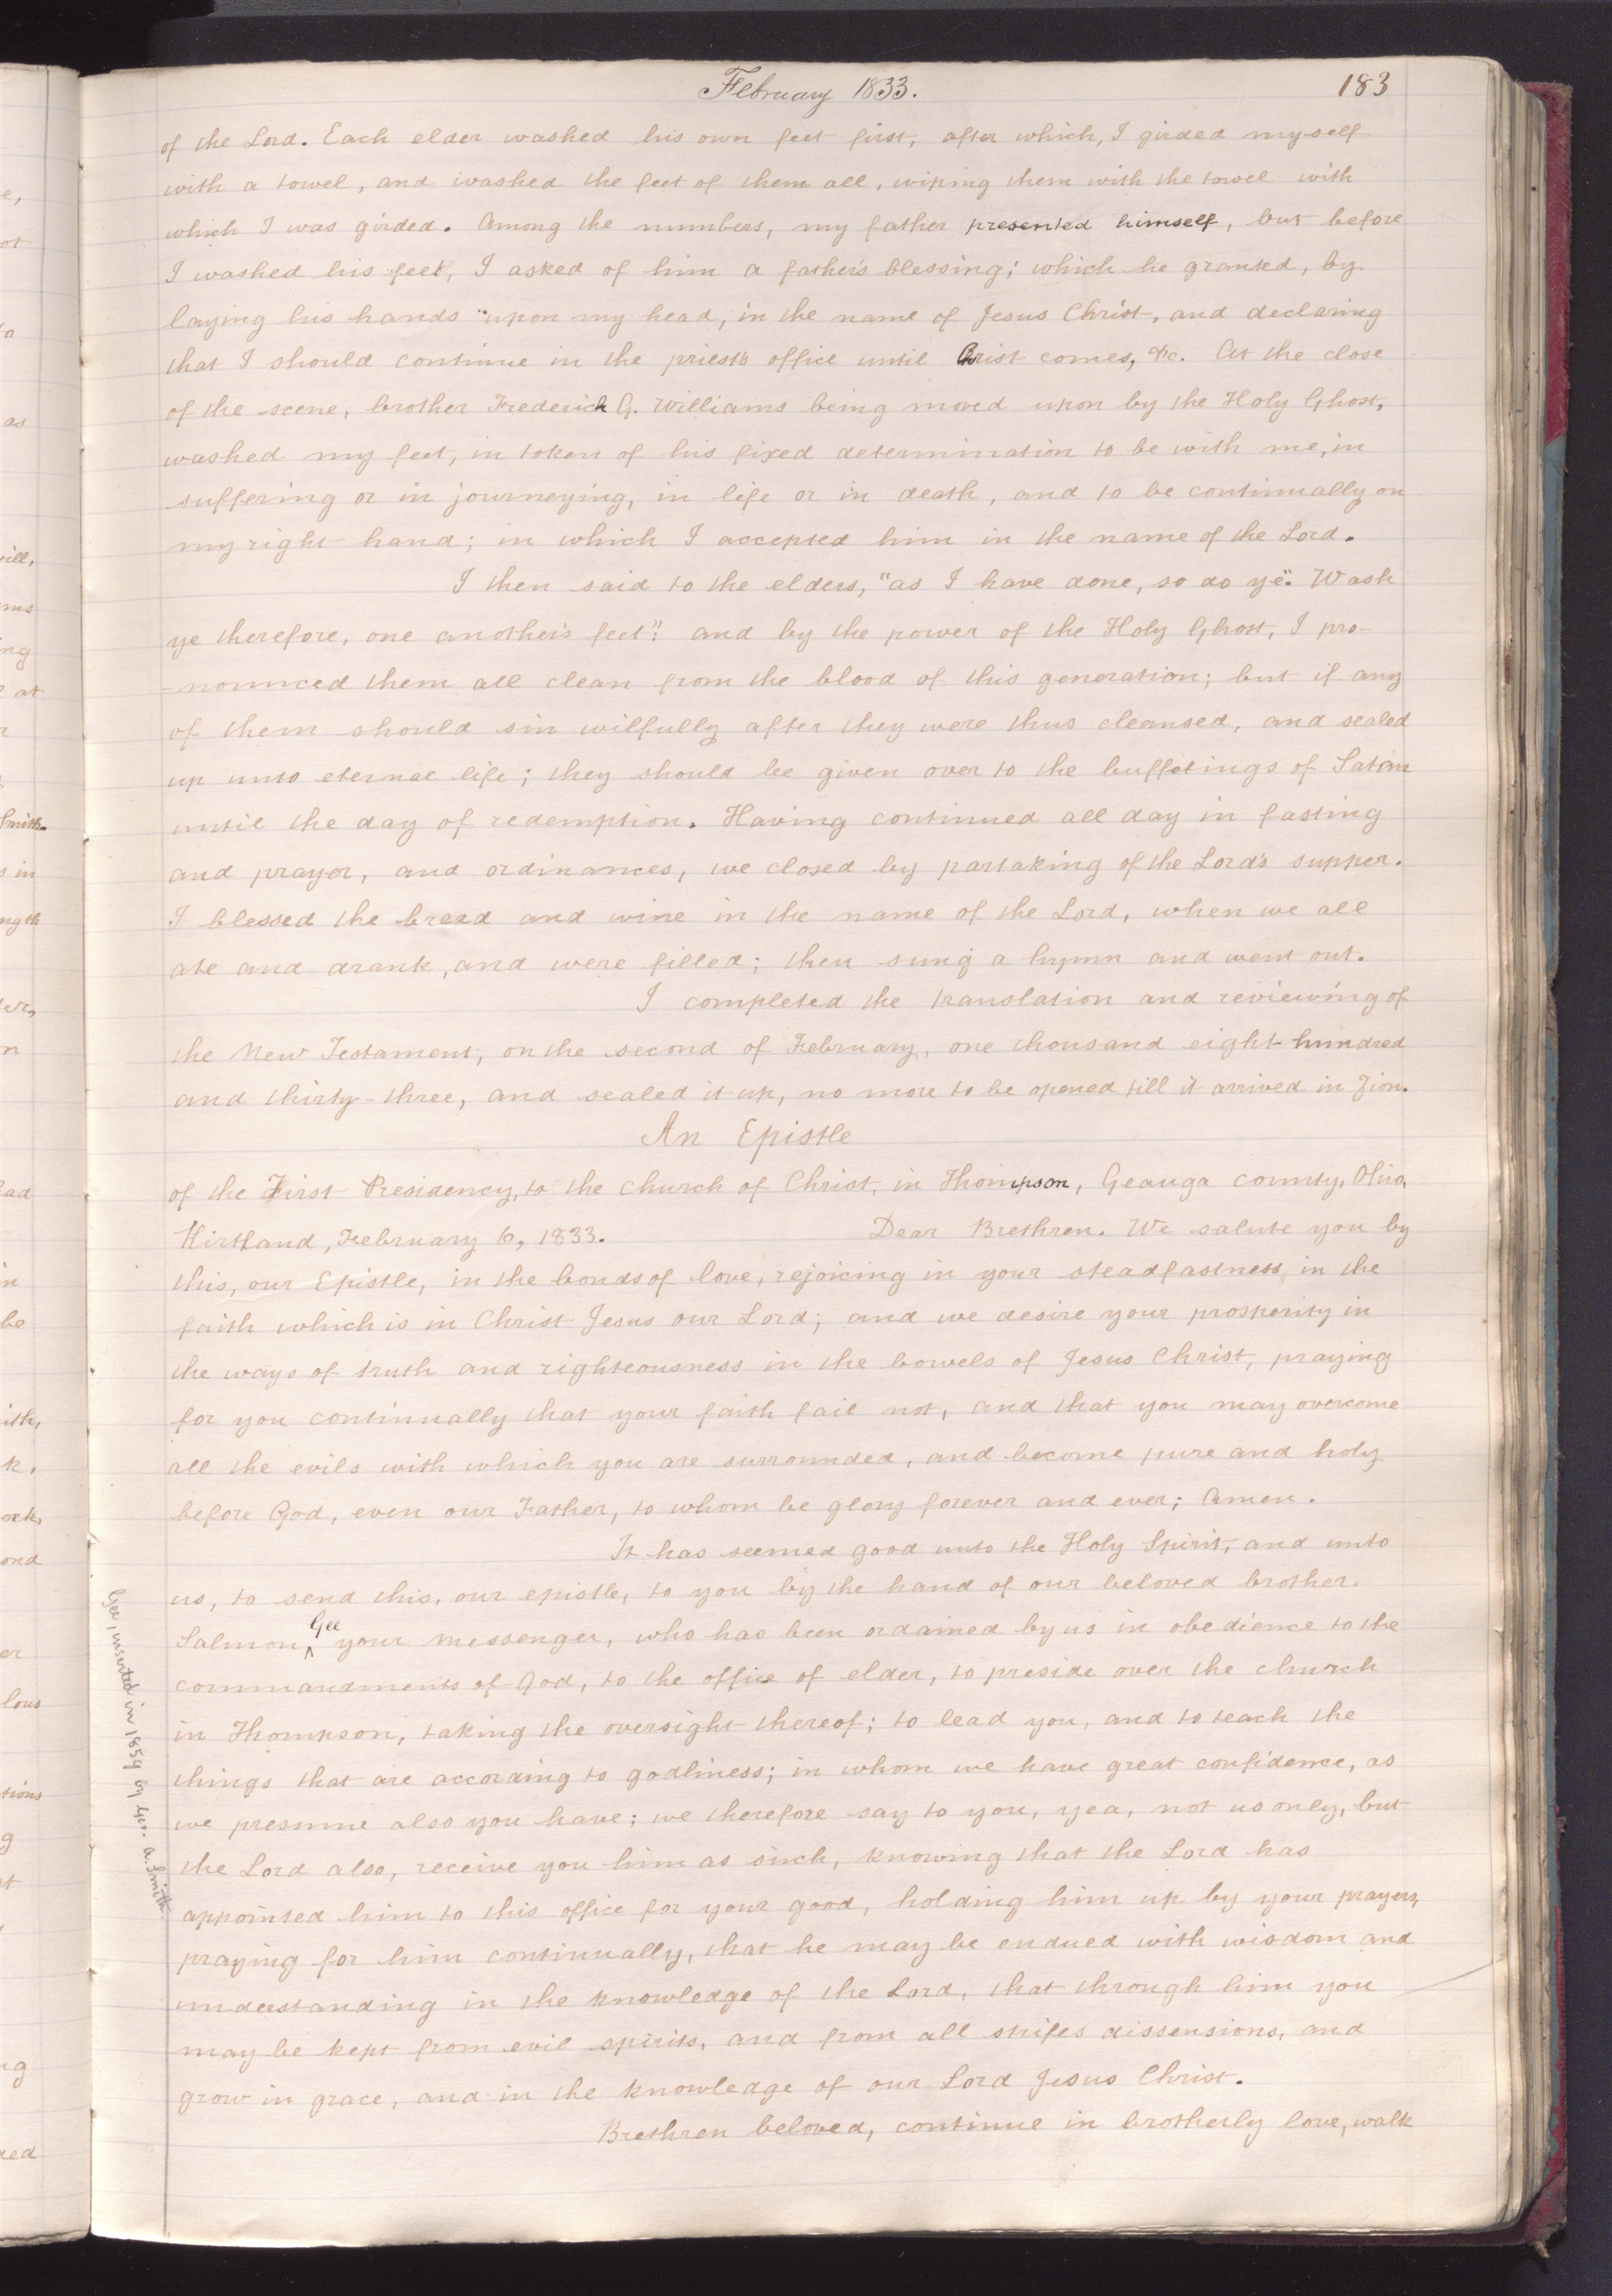 February 1833.
183
of the Lord. Each elder washed his own feet first, after which, I girded myself
with a towel, and washed the feet of them all, wiping them with the towel with
which I was girded. Among the numbers, my father presented himself, but before
I washed his feet, I asked of him a father's blessing; which he granted, by
laying his hands upon my head, in the name of Jesus Christ, and declaring
that I should continue in the priest's office until Christ comes, &c. At the close
of the scene, brother Frederick G. Williams being moved upon by the Holy Ghost,
washed my feet, in token of his fixed determination to be with me, in
suffering or in journeying, in life or in death, and to be continually on
my right hand; in which I accepted him in the name of the Lord.
I then said to the elders, "as I have done, so do ye". Wash
ye therefore, one another's feet": and by the power of the Holy Ghost, I pro-
-nounced them all clean from the blood of this generation; but if any
of them should sin wilfully after they were thus cleansed, and sealed
up unto eternal life; they should be given over to the buffetings of Satan
until the day of redemption. Having continued all day in fasting
and prayer, and ordinances, we closed by partaking of the Lord's supper.
I blessed the bread and wine in the name of the Lord, when we all
ate and drank, and were filled; then sung a hymn and went out.
I completed the translation and reviewing of
the New Testament, on the second of February, one thousand eight hundred
and thirty-three, and sealed it up, no more to be opened till it arrived in Zion.
An Epistle
of the First Presidency, to the church of Christ, in Thompson, Geauga county, Ohio.
Kirtland, February 6, 1833. Dear Brethren. We salute you by
this, our Epistle, in the bonds of love, rejoicing in your steadfastness, in the
faith which is in Christ Jesus our Lord; and we desire your prosperity in
the ways of truth and righteousness in the bowels of Jesus Christ, praying
for you continually that your faith fail not, and that you may overcome
all the evils with which you are surrounded, and become pure and holy
before God, even our Father, to whom be glory forever and ever; Amen.
It has seemed good unto the Holy Spirit, and unto
us, to send this, our epistle, to you by the hand of our beloved brother.
Salmon, ^Gee your messenger, who has been ordained by us in obedience to the
commandments of God, to the office of elder, to preside over the church
in Thompson, taking the oversight thereof; to lead you, and to teach the
things that are according to godliness; in whom we have great confidence, as
we presume also you have; we therefore say to you, yea, not us only, but
the Lord also, receive you him as such, knowing that the Lord has
appointed him to this office for your good, holding him up by your prayers,
praying for him continually, that he may be endued with wisdom and
understanding in the knowledge of the Lord, that through him you
may be kept from evil spirits, and from all strifes dissensions, and
grow in grace, and in the knowledge of our Lord Jesus Christ.
Brethren beloved, continue in brotherly love, walk
Gee, inserted in 1859 by Geo. A. Smith.